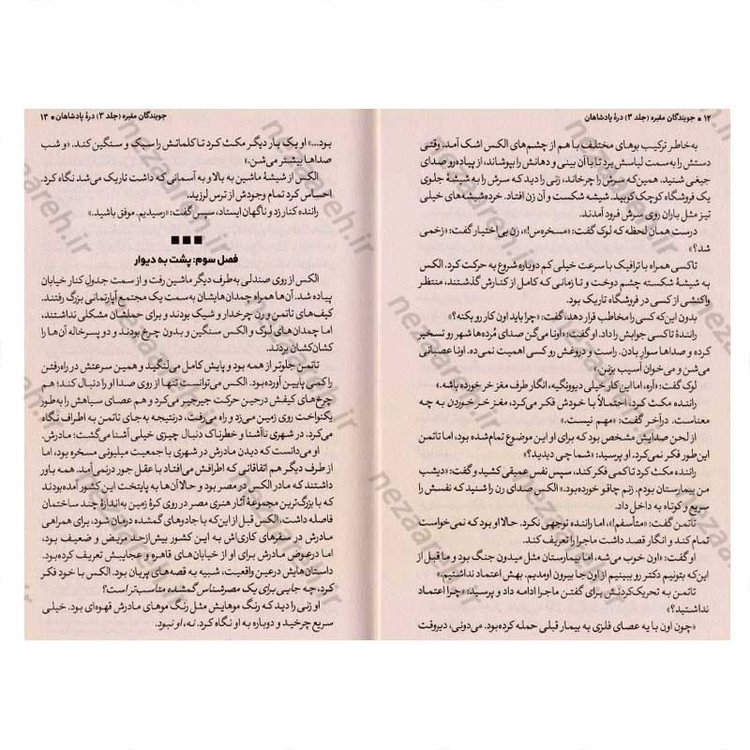 ۱۲ • جویندگان مقبره (جلد ۳) درهٔ پادشاهان
به‌خاطر ترکیب بوهای مختلف با هم از چشم‌های الکس اشک آمد. وقتی
دستش را به‌سمت لباسش برد تا با آن بینی و دهانش را بپوشاند، از پیاده‌رو صدای
جیغی شنید. همین‌که سرش را چرخاند، زنی را دید که سرش را به شیشهٔ جلوی
یک فروشگاه کوچک کوبید. شیشه شکست و آن زن افتاد. خرده‌شیشه‌های خیلی
تیز مثل باران روی سرش فرود آمدند.
درست همان لحظه که لوک گفت: «مسخره‌س!»، زن بی‌اختیار گفت: «زخمی
شد؟»
تاکسی همراه با ترافیک با سرعت خیلی کم دوباره شروع به حرکت کرد. الکس
به شیشهٔ شکسته چشم دوخت و تا زمانی که کامل از کنارش گذشتند، منتظر
واکنشی از کسی در فروشگاه تاریک بود.
بدون این‌که کسی را مخاطب قرار دهد، گفت: «چرا باید اون کار رو بکنه؟»
رانندهٔ تاکسی جوابش را داد. او گفت: «اونا می‌گن صدای مُرده‌ها شهر رو تسخیر
کرده و صداها سوارِ بادن. راست و دروغش رو کسی اهمیت نمی‌ده. اونا عصبانی
می‌شن و می‌خوان آسیب بزنن.
لوک گفت: «آره، اما این کار خیلی دیوونگیه، انگار طرف مغز خر خورده باشه.»
راننده مکث کرد، احتمالاً با خودش فکر می‌کرد، مغز خر خوردن به چه
معناست. درآخر گفت: «مهم نیست.»
از لحن صدایش مشخص بود که برای او این موضوع تمام‌شده بود، اما تاتمن
این‌طور فکر نمی‌کرد. او پرسید: «شما چی دیدید؟»
راننده مکث کرد تا کمی فکر کند، سپس نفس عمیقی کشید و گفت: «دیشب
من بیمارستان بودم. زنم چاقو خورده‌بود.» الکس صدای زن را شنید که نفسش را
سریع و کوتاه به داخل داد.
تاتمن گفت: «متأسفم!»، اما راننده توجهی نکرد. حالا او بود که نمی‌خواست
تمام کند و انگار قصد داشت ماجرا را تعریف کند.
او گفت: «اون خوب می‌شه. اما بیمارستان مثل میدون جنگ بود و ما قبل از
این‌که بتونیم دکتر رو ببینیم از اون‌جا بیرون اومدیم. بهش اعتماد نداشتیم.»
تاتمن به تحریک‌کردنش برای گفتن ماجرا ادامه داد و پرسید: «چرا اعتماد
نداشتید؟»
«چون اون با یه عصای فلزی به بیمار قبلی حمله کرده‌بود. می‌دونی، دیروقت
جویندگان مقبره (جلد ۳) درهٔ پادشاهان • ۱۳
بود...» او یک بار دیگر مکث کرد تا کلماتش را سبک و سنگین کند. «و شب
صداها بیشتر می‌شن.»
الکس از شیشهٔ ماشین به بالا و به آسمانی که داشت تاریک می‌شد نگاه کرد.
احساس کرد تمام وجودش از ترس لرزید.
راننده کنار زد و ناگهان ایستاد، سپس گفت: «رسیدیم. موفق باشید.»
■ ■ ■
فصل سوم: پشت به دیوار
الکس از روی صندلی به‌طرف دیگر ماشین رفت و از سمت جدول کنار خیابان
پیاده شد. آن‌ها همراه چمدان‌هایشان به‌سمت یک مجتمع آپارتمانی بزرگ رفتند.
کیف‌های تاتمن و رن چرخدار و شیک بودند و برای حملشان مشکلی نداشتند،
اما چمدان‌های لوک و الکس سنگین و بدون چرخ بودند و دو پسرخاله آن‌ها را
کشان‌کشان بردند.
تاتمن جلوتر از همه بود و پایش کامل می‌لنگید و همین سرعتش در راه‌رفتن
را کمی پایین آورده‌بود. الکس می‌توانست تنها از روی صدا او را دنبال کند؛ هم
چرخ‌های کیفش درحین حرکت جیرجیر می‌کرد و هم عصای سیاهش را به‌طور
یکنواخت روی زمین می‌زد و راه می‌رفت، درنتیجه به‌جای تاتمن به اطراف نگاه
می‌کرد. در شهری ناآشنا و خطرناک دنبال چیزی خیلی آشنا می‌گشت؛ مادرش.
او می‌دانست که دیدن مادرش در شهری با جمعیت میلیونی مسخره بود، اما
از طرف دیگر هم اتفاقاتی که اطرافش می‌افتاد با عقل جور درنمی‌آمد. همه باور
داشتند که مادر الکس در مصر بود و حالا آن‌ها به پایتخت این کشور آمده‌بودند
که با بزرگ‌ترین مجموعهٔ آثار هنری مصر در روی کرهٔ زمین به‌اندازهٔ چند ساختمان
فاصله داشت. الکس قبل از این‌که با جادوهای گمشده درمان شود، برای همراهی
مادرش در سفرهای کاری‌اش به این کشور بیش‌ازحد مریض و ضعیف بود،
اما درعوض مادرش برای او از خیابان‌های قاهره و عجایبش تعریف کرده‌بود.
داستان‌هایش درعین واقعیت، شبیه به قصه‌های پریان بود. الکس با خود فکر
کرد، چه جایی برای یک مصرشناس گمشده مناسب‌تر است؟
او زنی را دید که رنگ موهایش مثل رنگ موهای مادرش قهوه‌ای بود. خیلی
سریع چرخید و دوباره به او نگاه کرد. نه، او نبود.
nezaareh.ir